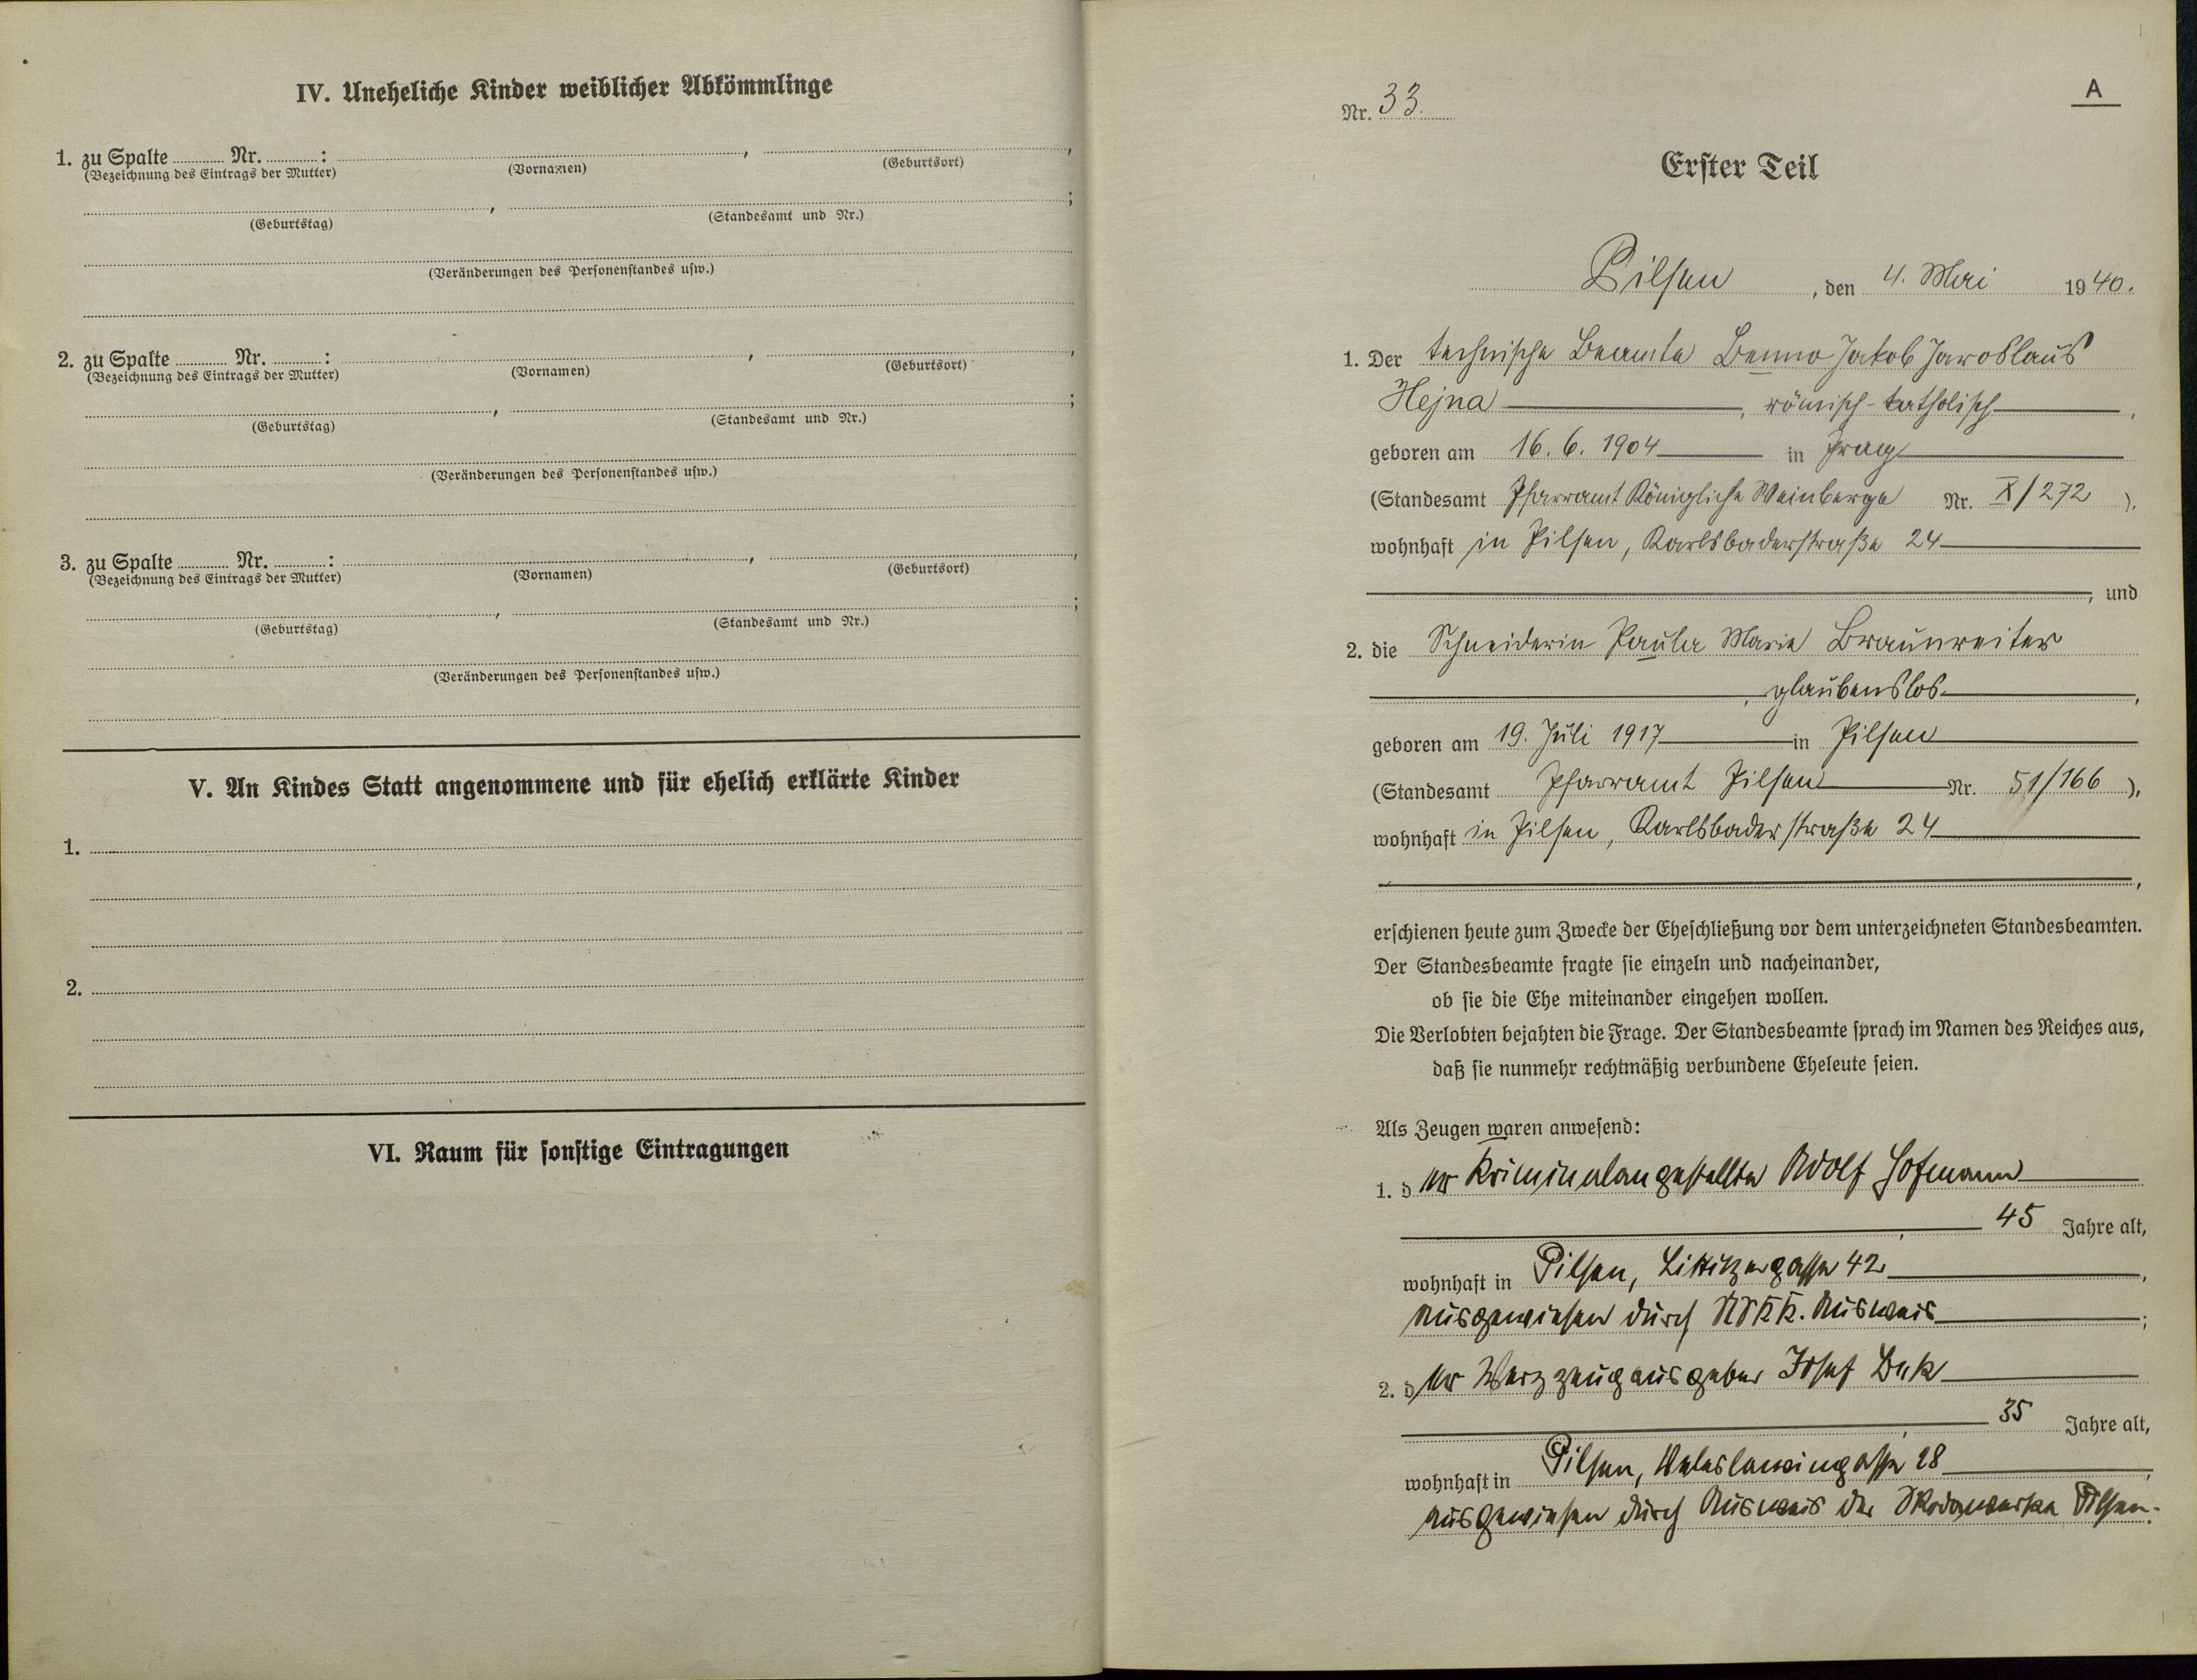 IV. Uneheliche Kinder weiblicher Abkömmlinge
1. zu Spalte ............ Nr. ............ :
(Bezeichnung des Eintrags der Mutter) (Vornamen) (Geburtsort)
(Geburtstag) (Standesamt und Nr.)
(Veränderungen des Personenstandes usw.)
2. zu Spalte ............ Nr. ............ :
(Bezeichnung des Eintrags der Mutter) (Vornamen) (Geburtsort)
(Geburtstag) (Standesamt und Nr.)
(Veränderungen des Personenstandes usw.)
3. zu Spalte ............ Nr. ............ :
(Bezeichnung des Eintrags der Mutter) (Vornamen) (Geburtsort)
(Geburtstag) (Standesamt und Nr.)
(Veränderungen des Personenstandes usw.)
V. An Kindes Statt angenommene und für ehelich erklärte Kinder
1.
2.
VI. Raum für sonstige Eintragungen
A
Nr. 33.
Erster Teil
Pilsen, den 4. Mai 1940.
1. Der technische Beamte Benno Jakob Jaroslaus
Hejna, römisch-katholisch,
geboren am 16. 6. 1904 in Prag
(Standesamt Pfarramt Königliche Weinberge Nr. X/272),
wohnhaft in Pilsen, Karlsbaderstraße 24
, und
2. die Schneiderin Paula Marie Braunreiter
, glaubenslos,
geboren am 19. Juli 1917 in Pilsen
(Standesamt Pfarramt Pilsen Nr. 51/166),
wohnhaft in Pilsen, Karlsbaderstraße 24
,
erschienen heute zum Zwecke der Eheschließung vor dem unterzeichneten Standesbeamten.
Der Standesbeamte fragte sie einzeln und nacheinander,
ob sie die Ehe miteinander eingehen wollen.
Die Verlobten bejahten die Frage. Der Standesbeamte sprach im Namen des Reiches aus,
daß sie nunmehr rechtmäßig verbundene Eheleute seien.
Als Zeugen waren anwesend:
1. der Kriminalangestellte Adolf Hofmann
, 45 Jahre alt,
wohnhaft in Pilsen, Littitzergasse 42,
ausgewiesen durch NSKK. Ausweis;
2. der Werkzeugausgeber Josef
, 35 Jahre alt,
wohnhaft in Pilsen, 28,
ausgewiesen durch Ausweis der Skodawerke Pilsen.